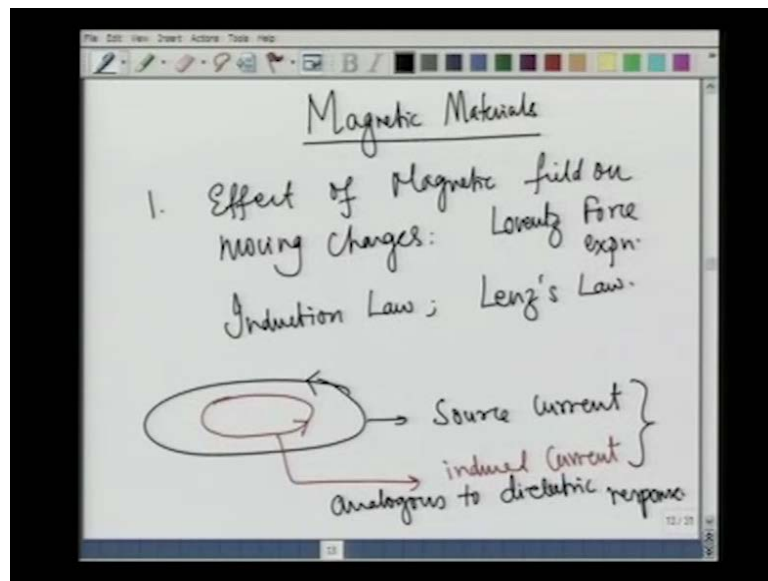 File Edit View Insert Actions Tools Help
B I
Magnetic Materials
1. Effect of Magnetic field on
moving charges: Lorentz Force
expn.
Induction Law; Lenz's Law.
Source current
induced current
analogous to dielectric response
13/31
13